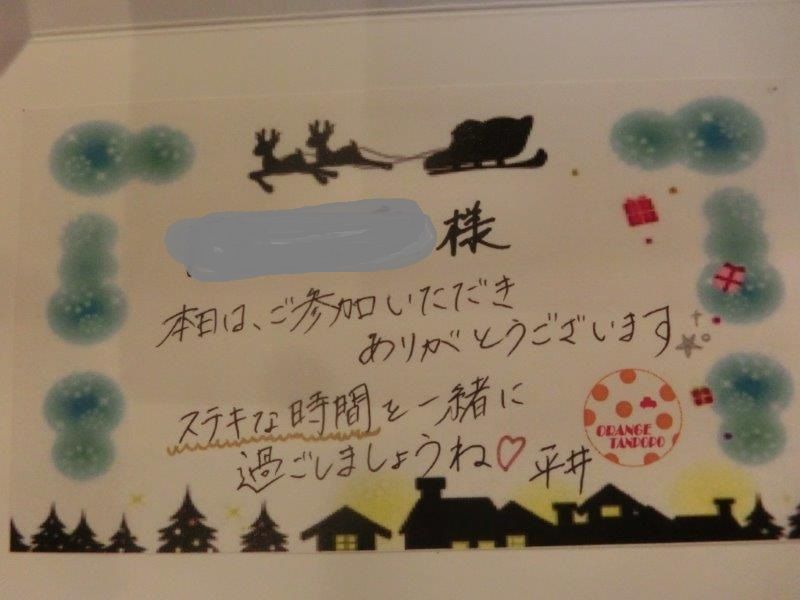 様
本日は、ご参加いただき
ありがとうございます
ステキな時間を一緒に
過ごしましょうね♡ 平井
ORANGE
TANPOPO